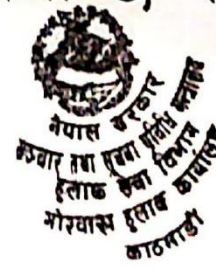 नेपाल सरकार
सञ्चार तथा सूचना प्रविधि मन्त्रालय
हुलाक सेवा विभाग
गोश्वारा हुलाक कार्यालय
काठमाडौं